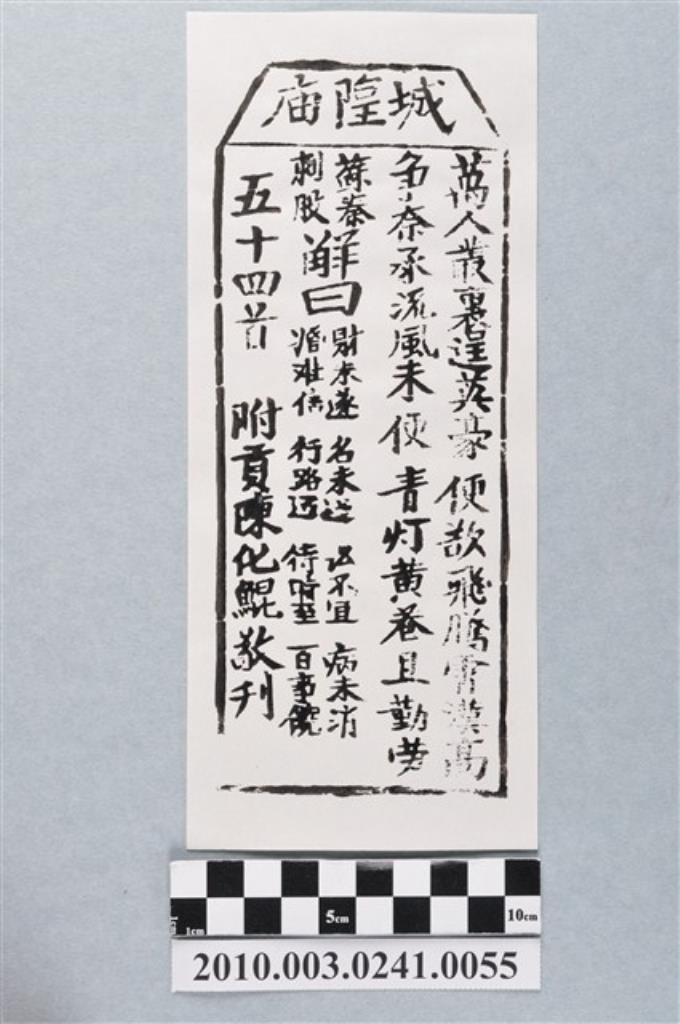 城隍庙
萬人叢裏逞英豪 便欲飛騰霄漢高
争奈承流風未便 青灯黄卷且勤劳
蘇秦
刺股
解曰
財未遂 名未 訟不宜 病未消
婚难信 行路 待時至 百事饒
五十四首 附貢陳化鯤敬刊
5cm
10cm
1cm
1cm
2010.003.0241.0055